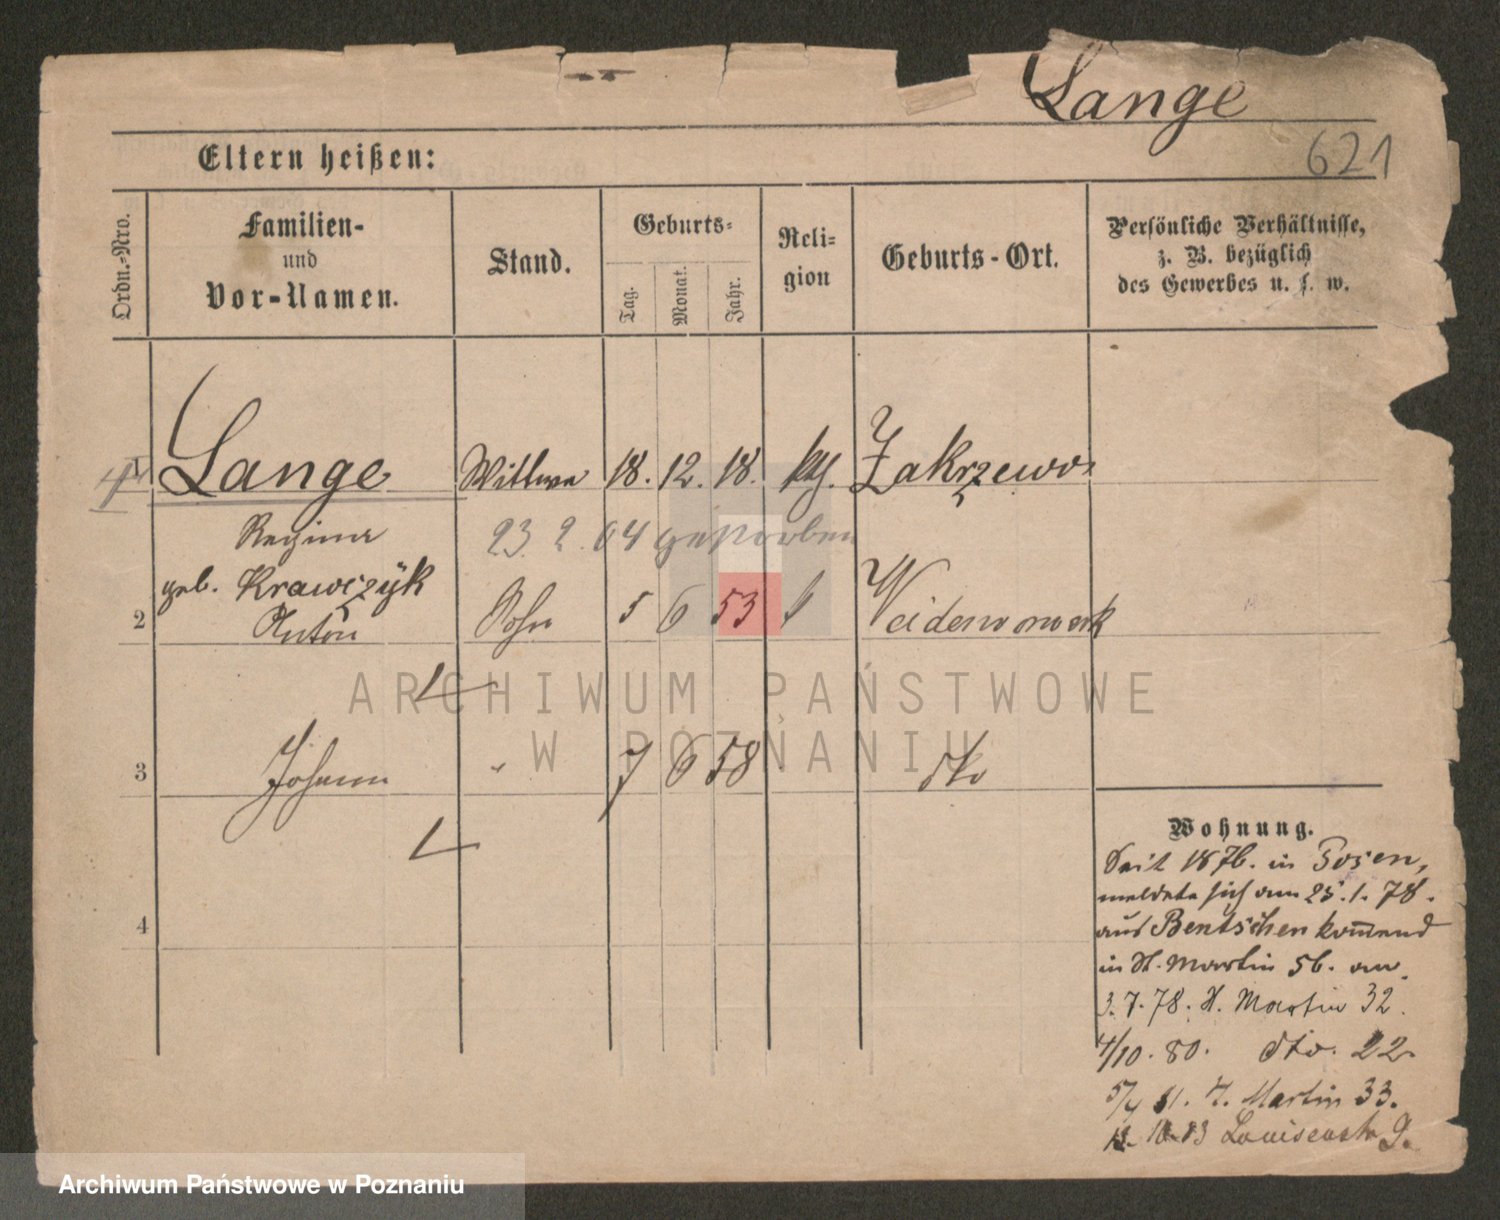 Lange
621
Eltern heißen:
Ordn.-Nro.
Familien-
und
Vor-Namen.
Stand.
Geburts-
Tag.
Monat.
Jahr.
Reli-
gion
Geburts-Ort.
Persönliche Verhältnisse,
z. B. bezüglich
des Gewerbes u. s. w.
1 Lange Wittwe 18. 12. 18. kth. Zakrzewo
Regina 23. 2. 04 gestorben
geb. Krawczÿk
2 Anton Sohn 5 6 53 Weidenvorwerk
3 Johann " 7 6 58 dto
4
Wohnung.
Seit 1876. in Posen,
meldete sich am 25.1.78.
aus Bentschen kom̅end
in St. Martin 56. an.
3.7.78. St. Martin 32.
4/10.80. dto. 22.
5/4 81. St. Martin 33.
10.83 Louisenstr 9.
ARCHIWUM PAŃSTWOWE
W POZNANIU
Archiwum Państwowe w Poznaniu